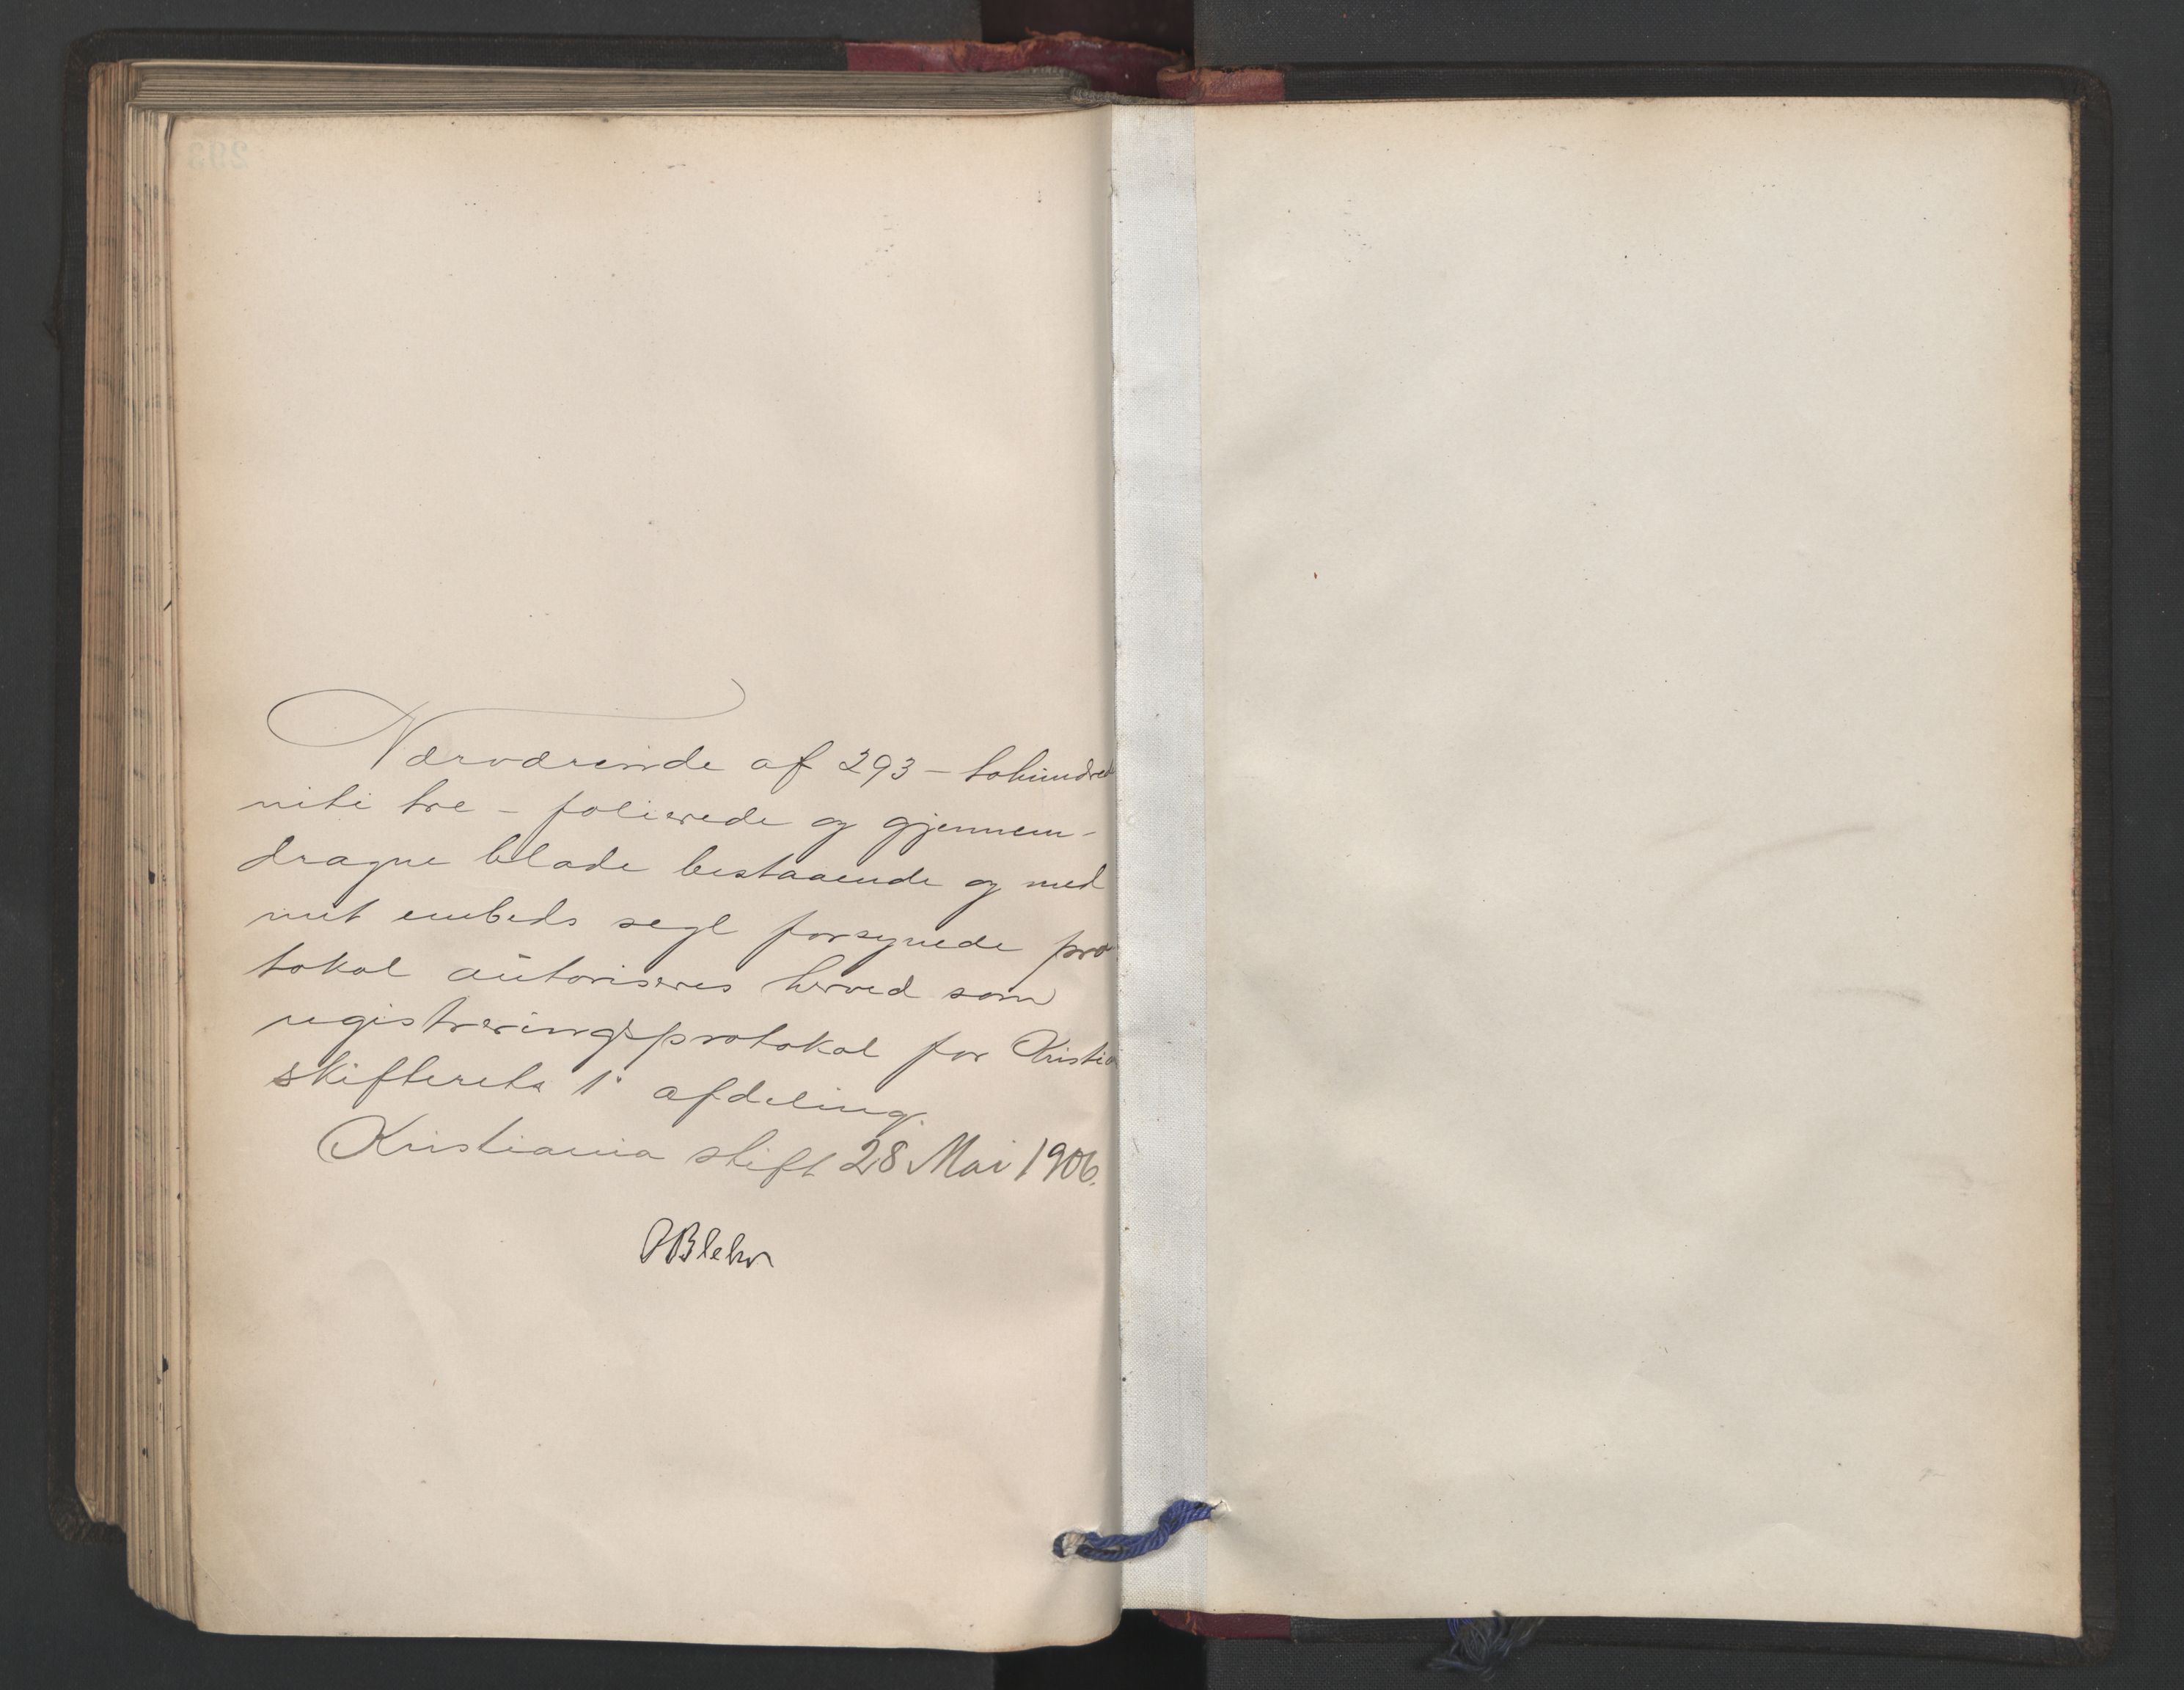 Nærværende af 293 – tohundred
niti tre – folierede og gjennem-
dragne blade bestaaende og med
mit embeds segl forsynede pro
tokol autoriseres herved som
registreringsprotokol for Kristia
skifterets 1' afdeling.
Kristiania stift 28 Mai 1906.
OBlehr